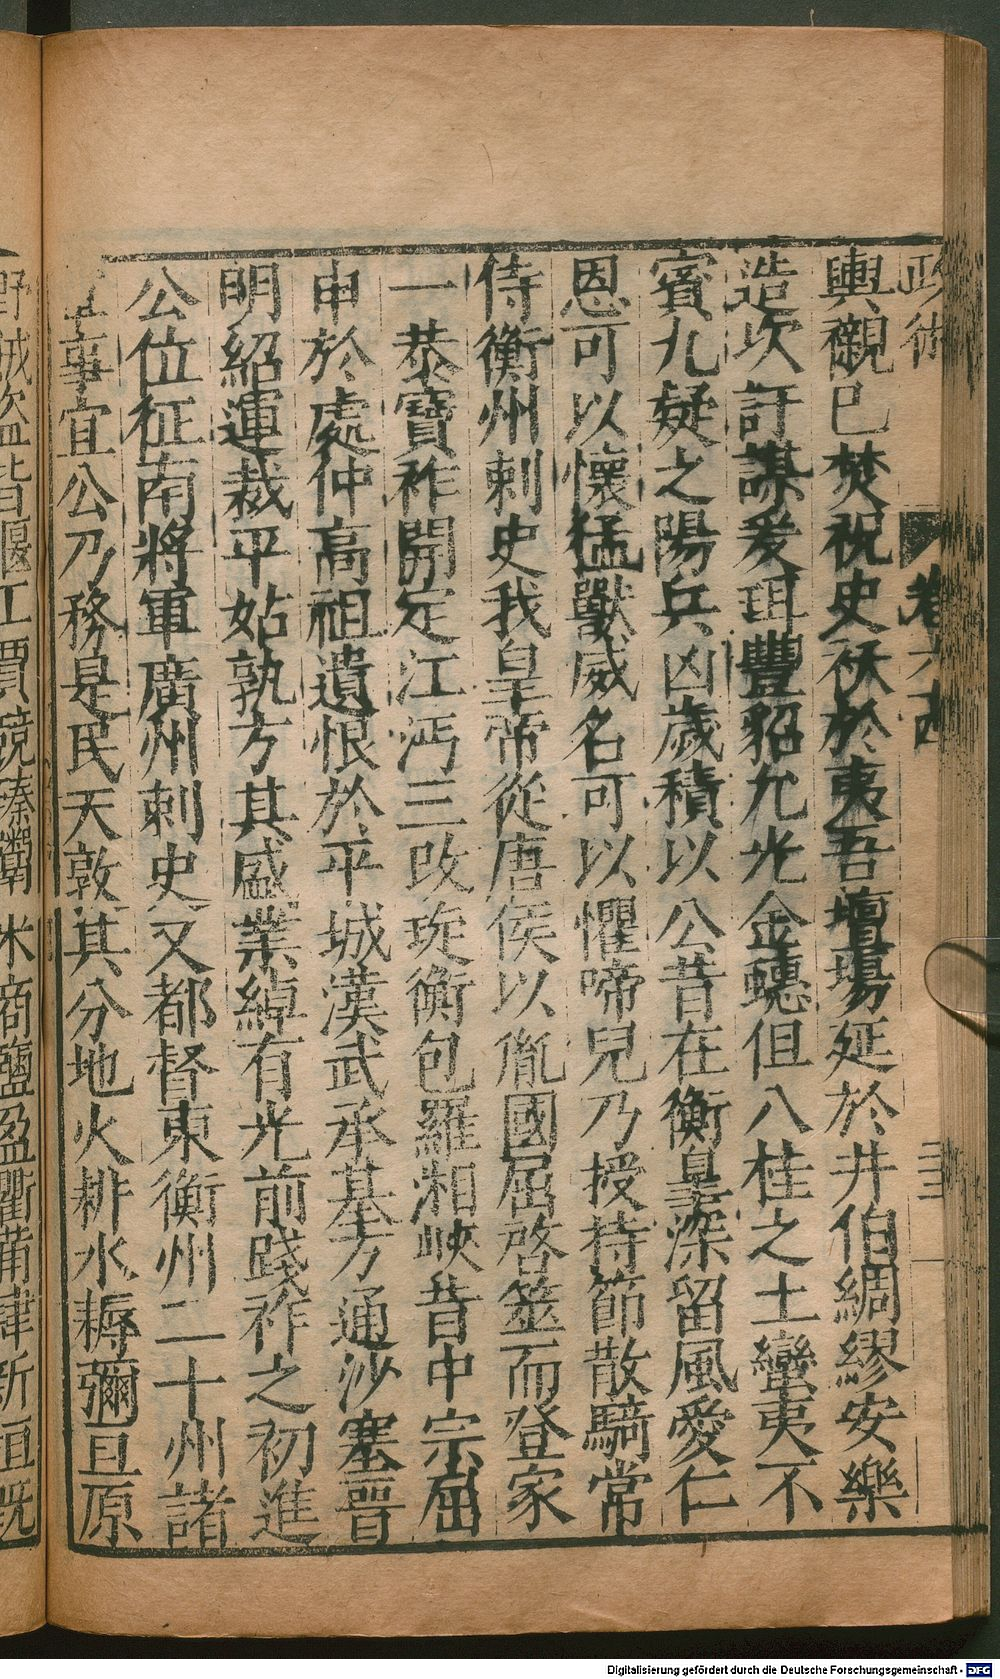 政術
卷六百
輿櫬已焚祝史祅於夷吾壇場延於井伯綢繆安樂
造次訏謀爰珥豐貂允光金蟪但八桂之土蠻夷不
賓九疑之陽兵凶歲積以公昔在衡皐深留風愛仁
恩可以懷猛獸威名可以懼啼兒乃授持節散騎常
侍衡州刺史我皇帝從唐侯以胤國屈啓筮而登家
一恭寶祚開定江沔三改琁衡包羅湘峽昔中宗屈
申於處仲高祖遺恨於平城漢武承基方通沙塞晉
明紹運裁平姑孰方其盛業綽有光前踐祚之初進
公位征南將軍廣州刺史又都督東衡州二十州諸
事宜公乃務是民天敦其分地火排水耨彌亘原
野賊盜皆偃工賈競臻鬻米商鹽盈衢滿肆新垣旣
Digitalisierung gefördert durch die Deutsche Forschungsgemeinschaft - DFG